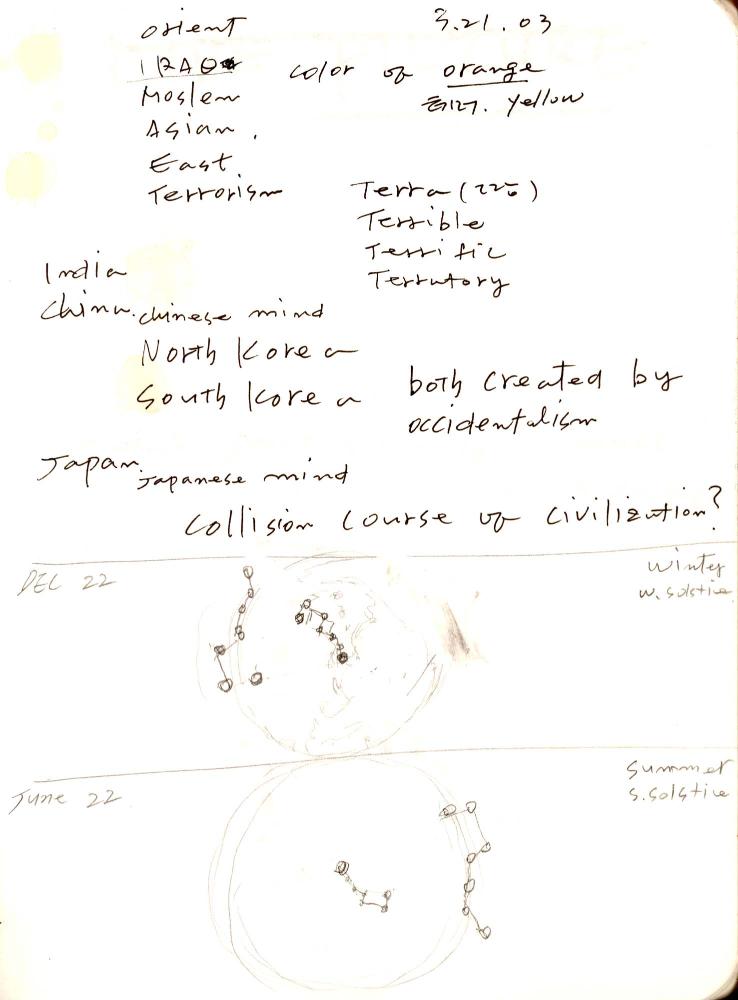 orient 3.21.03
IRAQ color of orange
Moslem yellow
Asian.
East.
Terrorism Terra ( )
Terrible
Terrific
India Terrutory
China. chinese mind
North Korea
South Korea both created by
occidentalism
Japan. Japanese mind
collision course of civilization?
DEC 22 winter
w. solstice
June 22 summer
s. solstice